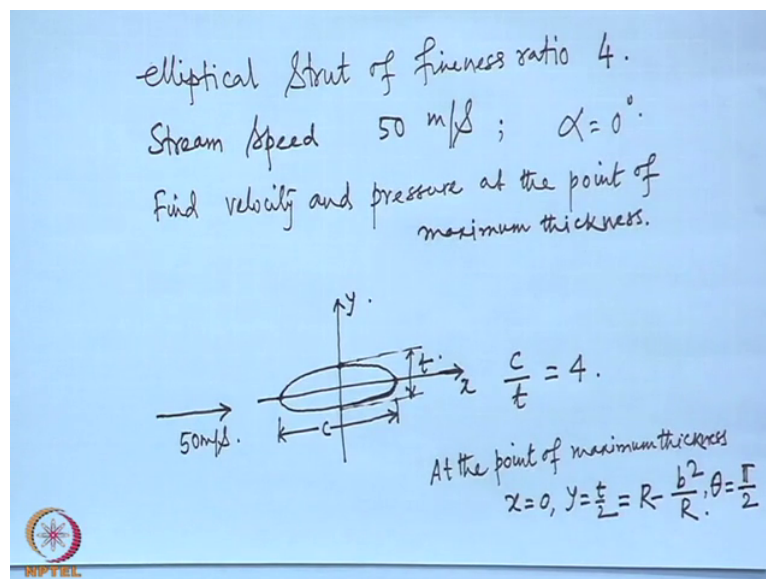 elliptical strut of fineness ratio 4.
Stream speed 50 m/s ; α = 0°.
Find velocity and pressure at the point of
maximum thickness.
y.
t.
x
c/t = 4.
50m/s.
c
At the point of maximum thickness
x=0, y = t/2 = R - b²/R, θ = π/2
NPTEL